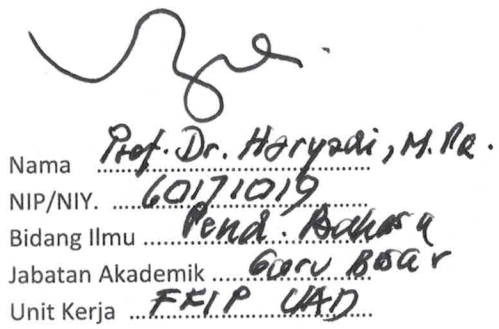 Nama Prof. Dr. Haryadi, M.Pd.
NIP/NIY. 60171019
Bidang Ilmu Pend. Bahasa
Jabatan Akademik Guru Besar
Unit Kerja FKIP UAD